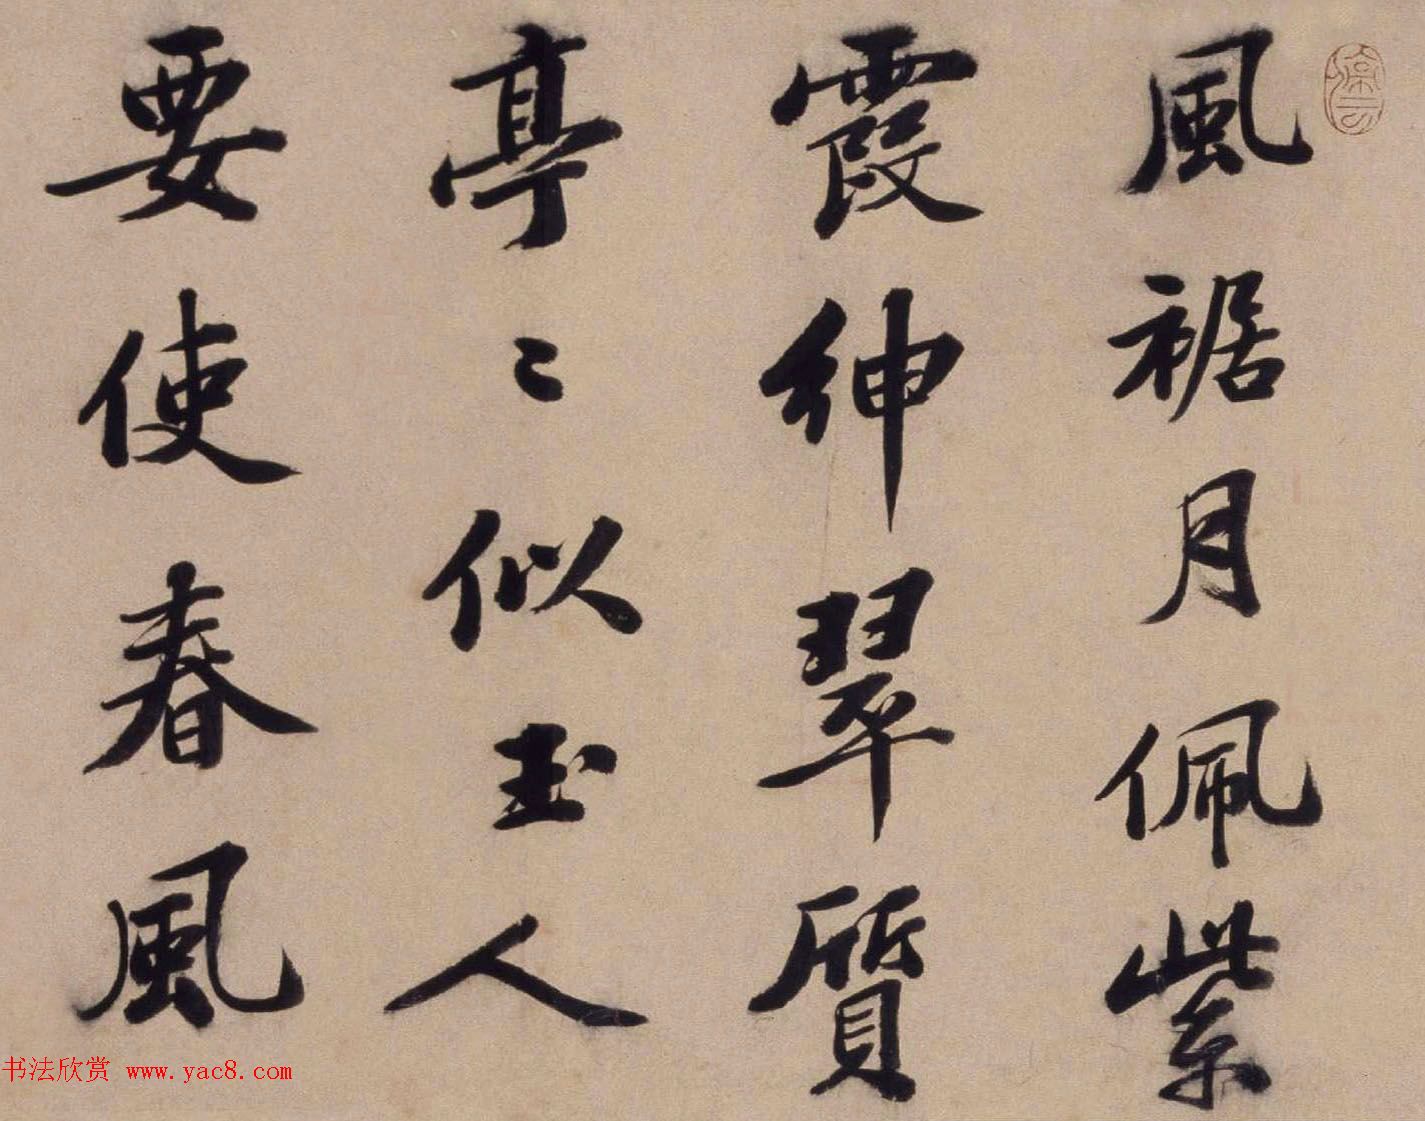 風裾月佩紫
霞紳翠質
亭〻似玉人
要使春風
书法欣赏 www.yac8.com